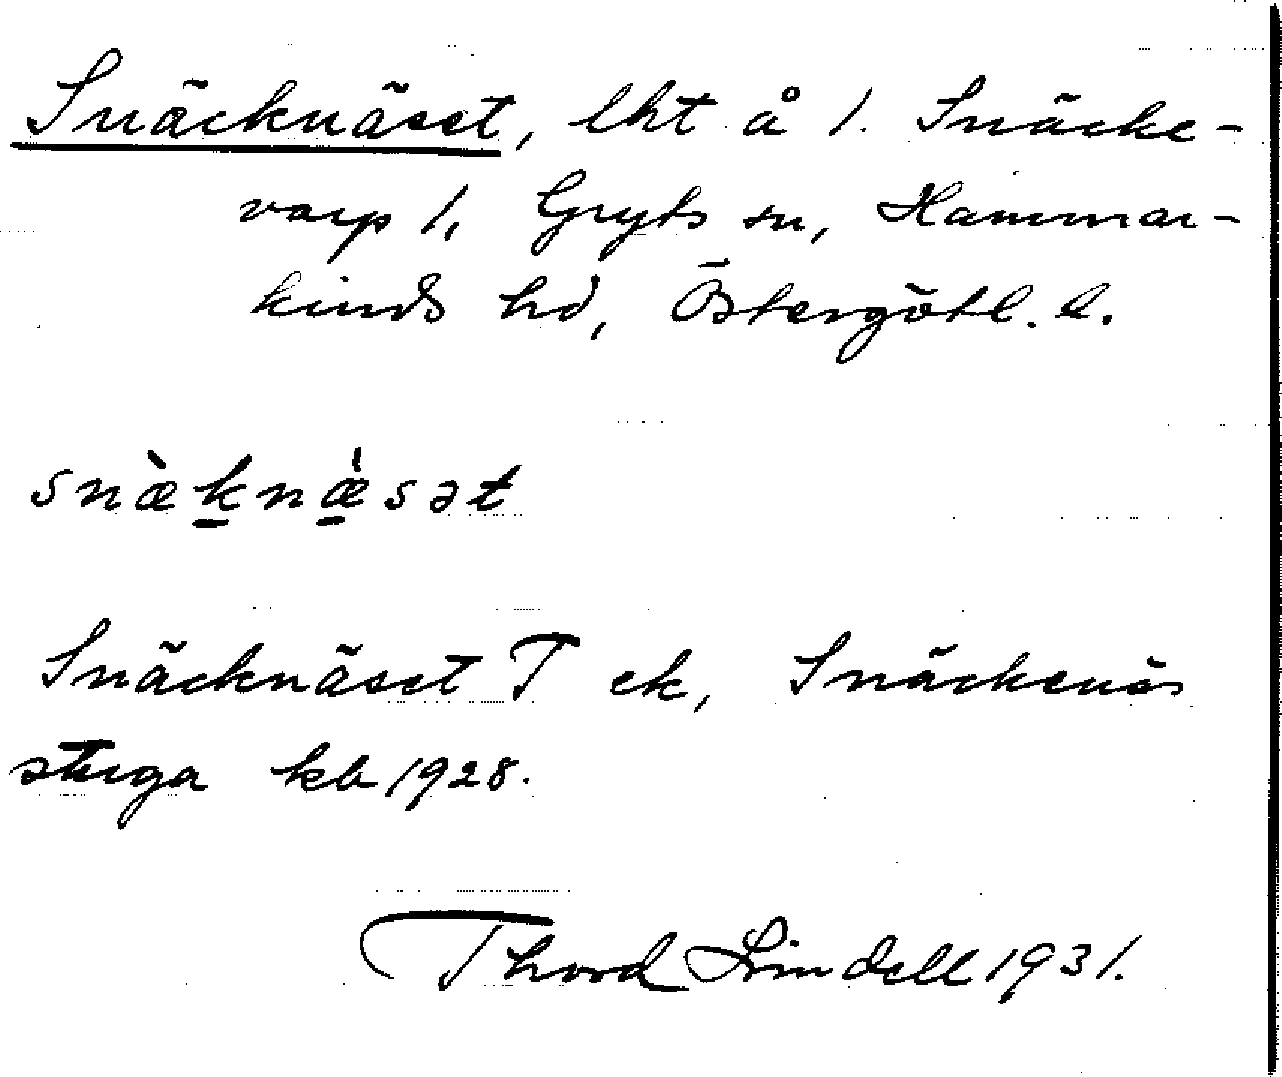 Snäcknäset, lht å 1. Snäcke-
varp 1, Gryts sn, Hammar-
kinds hd, Östergötl. l.
snæ̀k̠næ̠̀sət
Snäcknäset T ek, Snäckenäs
stuga kb 1928.
Thord Lindell 1931.